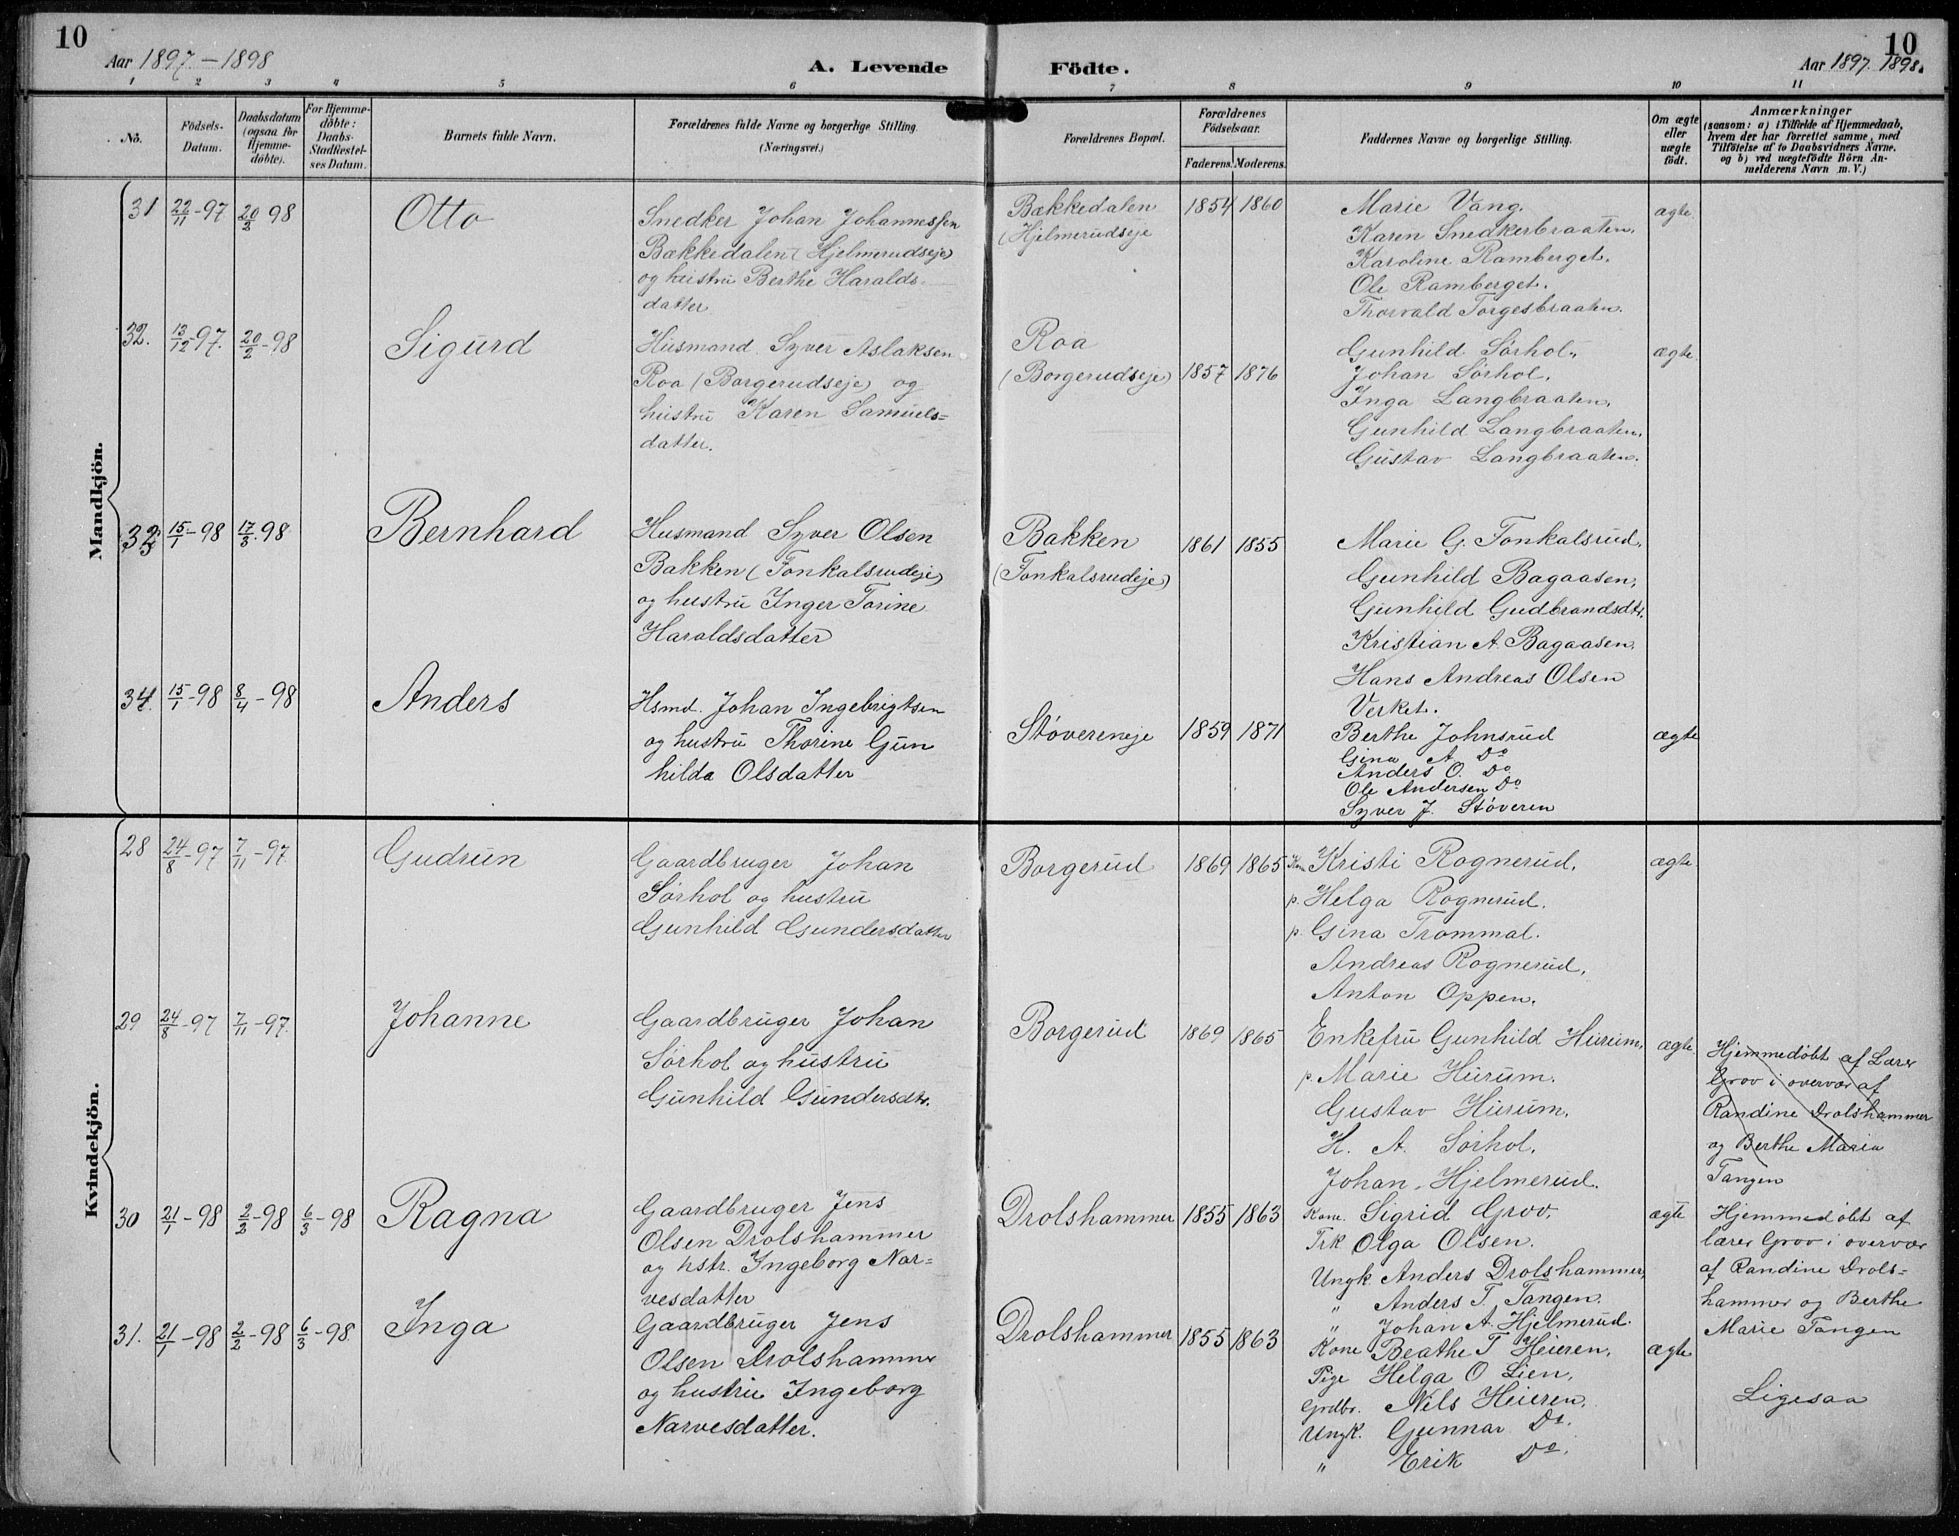 10
Aar 1897 – 1898
A. Levende Födte.
Aar 1897. 1898.
10
1 2 3 4 5 6 7 8 9 10 11
No.
Födsels-
Datum.
Daabsdatum
(ogsaa for
Hjemme-
döbte).
For Hjemme-
döbte:
Daabs-
Stadfæstel-
ses Datum.
Barnets fulde Navn.
Forældrenes fulde Navne og borgerlige Stilling.
(Næringsvei.)
Forældrenes Bopæl.
Forældrenes
Födselsaar.
Faderens. Moderens.
Faddernes Navne og borgerlige Stilling.
Om ægte
eller
uægte
födt.
Anmærkninger
(saasom: a) i Tilfælde af Hjemmedaab,
hvem der har forrettet samme, med
Tilföielse af to Daabsvidners Navne.
og b) ved uægtefödte Börn An-
melderens Navn m. V.)
Mandkjön.
31 22/11-97 20/2 98 Otto
Snedker Johan Johannessen
Bækkedalen (Hjelmerudseje)
og hustru Berthe Haralds-
datter
Bækkedalen
(Hjelmerudseje
1854 1860
Marie Vang.
Karen Snedkerbraaten.
Karoline Ramberget.
Ole Ramberget.
Thorvald Torgesbraaten.
ægte.
32. 13/12-97. 20/2-98 Sigurd
Husmand Syver Aslaksen
Roa (Borgerudseje) og
hustru Karen Samuels=
datter.
Roa
(Borgerudseje)
1857 1876
Gunhild Sørhol.
Johan Sørhol.
Inga Langbraaten.
Gunhild Langbraaten.
Gustav Langbraaten.
ægte.
33 15/1-98 17/3.98 Bernhard
Husmand Syver Olsen
Bakken (Tonkalsrudeje)
og hustru Inger Torine
Haraldsdatter
Bakken
(Tonkalsrudeje)
1861 1855
Marie G. Tonkalsrud.
Gunhild Bagaasen,
Gunhild Gudbrandsdtr.
Kristian A. Bagaasen.
Hans Andreas Olsen
Verket.
34. 15/1-98 8/4-98 Anders
Hsmd. Johan Ingebrigtsen
og hustru Thorine Gun
hilda Olsdatter
Støvereneje
1859 1871
Berthe Johnsrud
Gina A Do
Anders O. Do
Ole Andersen Do
Syver J. Støveren
ægte
Kvindekjön.
28 24/8-97 7/11-97 Gudrun
Gaardbruger Johan
Sørhol og hustru
Gunhild Gundersdatter
Borgerud
1869 1865
Kone Kristi Rognerud,
p. Helga Rognerud.
p. Gina Trommal.
Andreas Rognerud,
Anton Oppen.
ægte
29 24/8-97 7/11-97. Johanne
Gaardbruger Johan
Sørhol og hustru
Gunhild Gundersdtr.
Borgerud
1869 1865
Enkefru Gunhild Hurum,
p. Marie Hurum.
Gustav Hurum,
H. A. Sørhol.
Johan Hjelmerud.
ægte
Hjemmedøbt af Lærer
Grov i overvær af
Randine Drolshammer
og Berthe Maria
Tangen
30 21/1-98 2/2-98 6/3-98 Ragna
Gaardbruger Jens
Olsen Drolshammer
og hstr. Ingeborg Nar=
vesdatter
Drolshammer
1855 1863
Kone. Sigrid Grov.
Frk Olga Olsen.
Ungk Anders Drolshammer,
" Anders T. Tangen.
" Johan A. Hjelmerud.
ægte
Hjemmedøbt af
lærer Grov i overvær
af Randine Drols=
hammer og Berthe
Marie Tangen
31. 21/1-98 2/2-98 6/3-98 Inga
Gaardbruger Jens
Olsen Drolshammer
og hustru Ingeborg
Narvesdatter.
Drolshammer
1855 1863
Kone Beathe T Heieren,
Pige Helga O Lien,
Grdbr. Nils Heieren,
Ungk. Gunnar Do.
" Erik Do.
ægte
Ligesaa